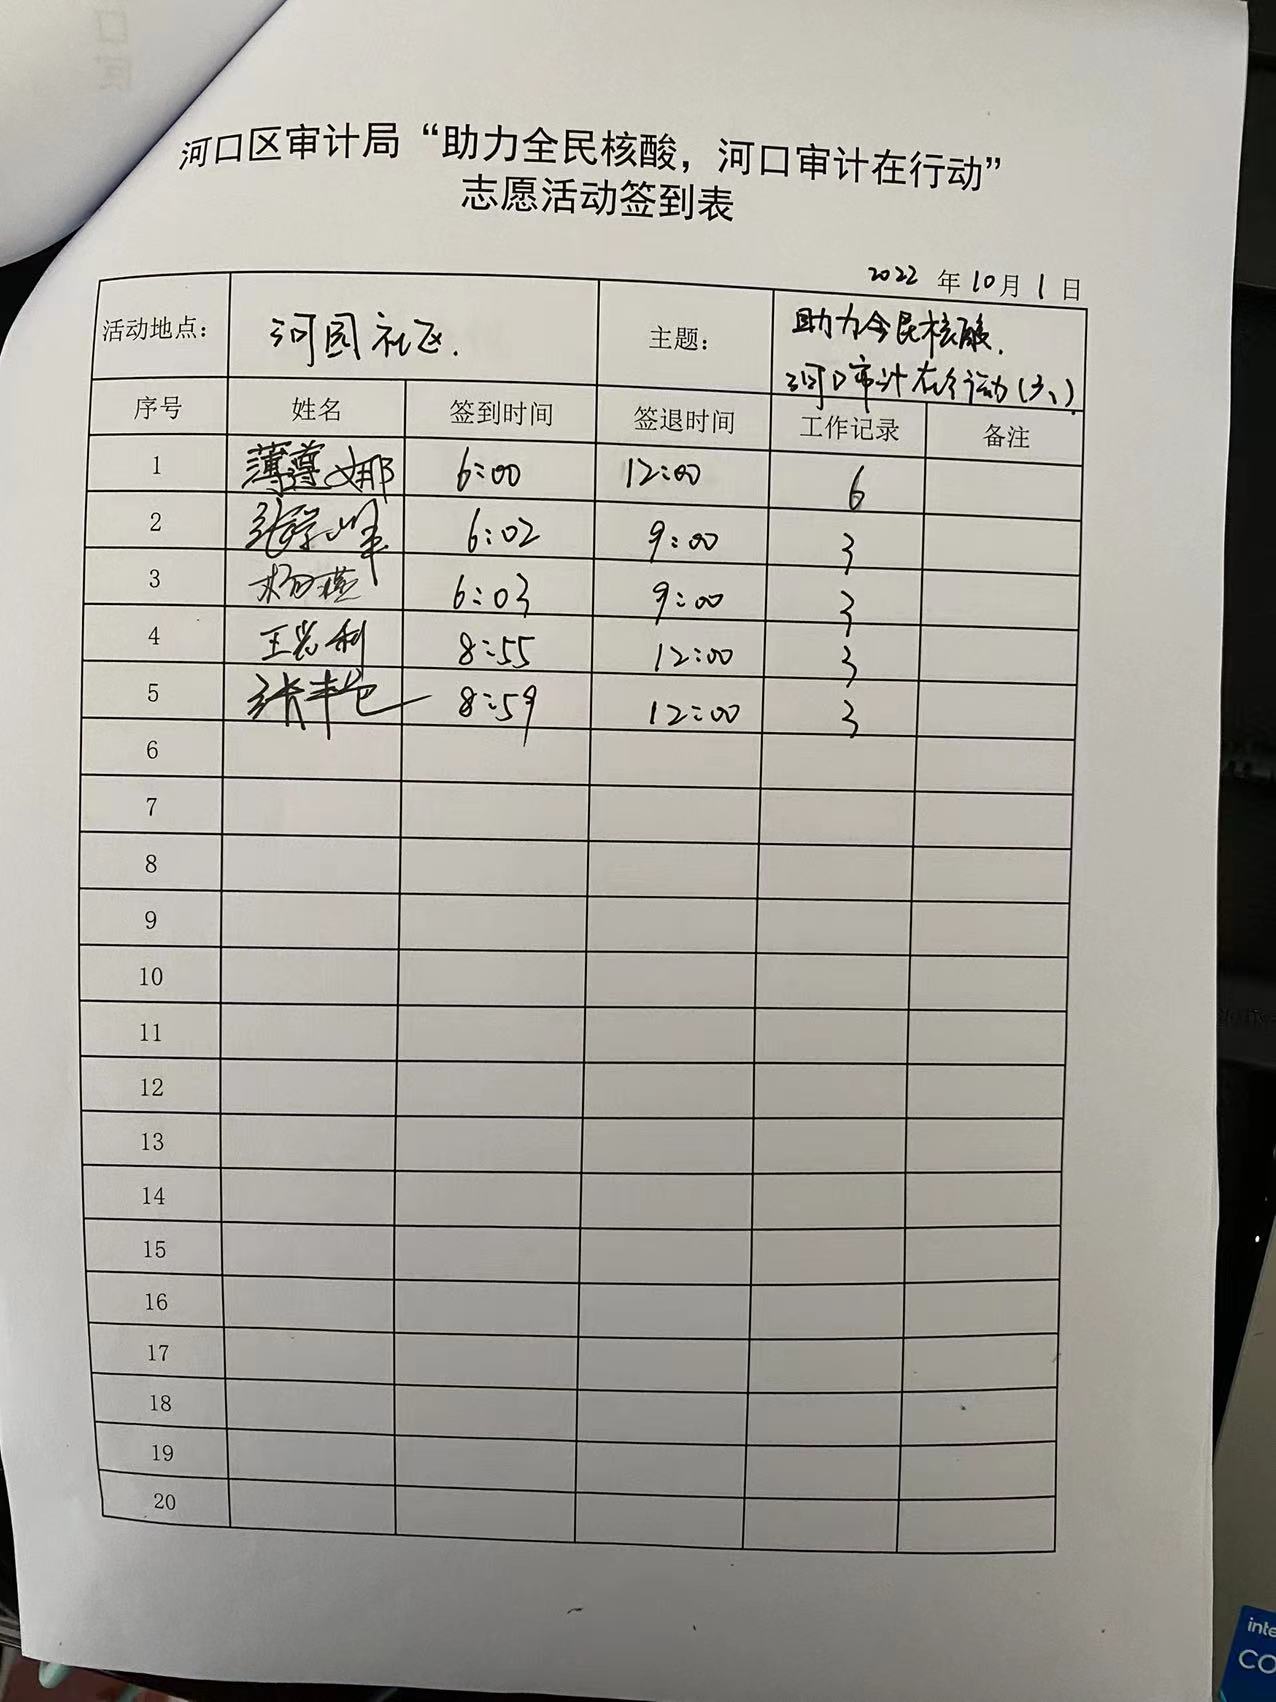 河口区审计局“助力全民核酸，河口审计在行动”
志愿活动签到表
2022 年 10 月 1 日
活动地点： 河园社区. 主题： 助力全民核酸.
河口审计在行动(六)
序号 姓名 签到时间 签退时间 工作记录 备注
1 薄尊娜 6:00 12:00 6
2 6:02 9:00 3
3 6:03 9:00 3
4 8:55 12:00 3
5 8:59 12:00 3
6
7
8
9
10
11
12
13
14
15
16
17
18
19
20